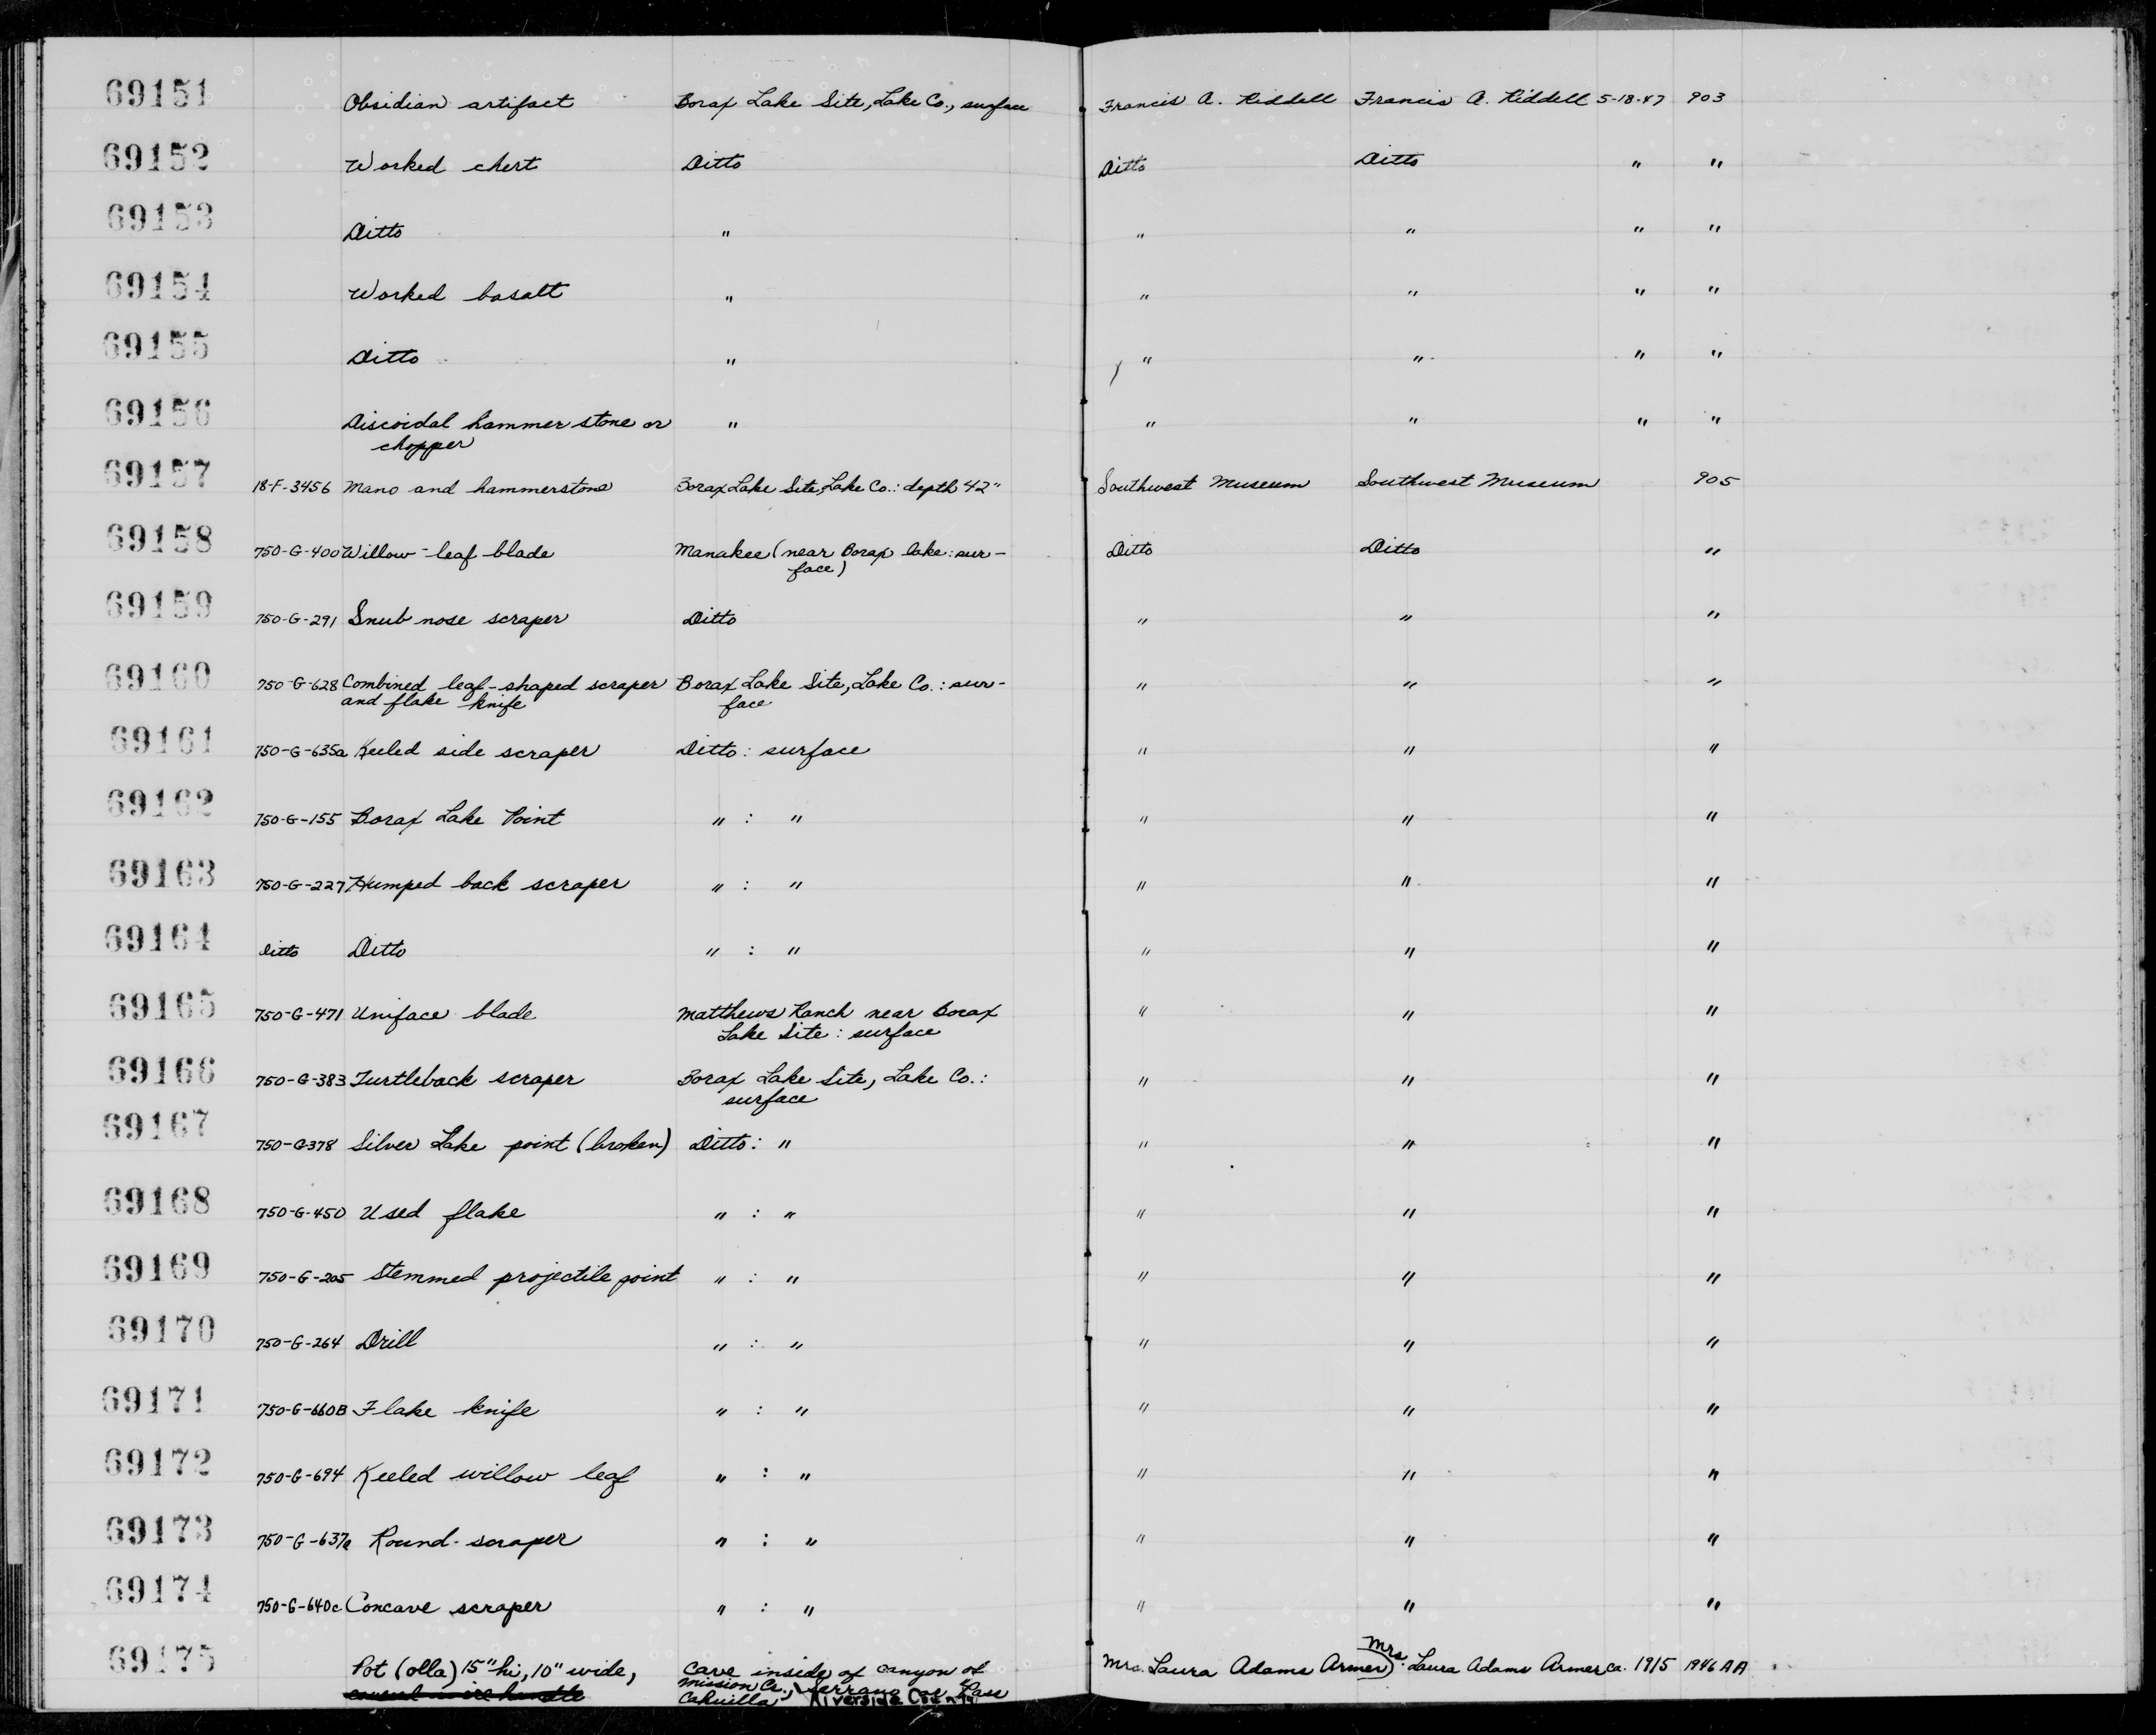 69151 Obsidian artifact Borax Lake Site, Lake Co., surface Francis A. Riddell Francis A. Riddell 5-18-47 903
69152 Worked chert Ditto Ditto Ditto " "
69153 Ditto " " " " "
69154 Worked basalt " " " " "
69155 Ditto " " " " "
69156 Discoidal hammer stone or " " " " "
chopper
69157 18-F-3456 Mano and hammerstone Borax Lake Site, Lake Co.: depth 42" Southwest Museum Southwest Museum 905
69158 750-G-400 Willow-leaf blade Manakee (near Borax lake: sur- Ditto Ditto "
face)
69159 750-G-291 Snub nose scraper Ditto " " "
69160 750-G-628 Combined leaf-shaped scraper Borax Lake Site, Lake Co.: sur- " " "
and flake knife face
69161 750-G-635a Keeled side scraper Ditto: surface " " "
69162 750-G-155 Borax Lake Point " : " " " "
69163 750-G-227 Humped back scraper " : " " " "
69164 Ditto Ditto " : " " " "
69165 750-G-471 Uniface blade Matthews Ranch near Borax " " "
Lake Site: surface
69166 750-G-383 Turtleback scraper Borax Lake Site, Lake Co.: " " "
surface
69167 750-G-378 Silver Lake point (broken) Ditto: " " " "
69168 750-G-450 Used flake " : " " " "
69169 750-G-205 Stemmed projectile point " : " " " "
69170 750-G-264 Drill " : " " " "
69171 750-G-660B Flake knife " : " " " "
69172 750-G-694 Keeled willow leaf " : " " " "
69173 750-G-637a Round-scraper " : " " " "
69174 750-G-640c Concave scraper " : " " " "
69175 Pot (olla) 15" hi, 10" wide, Cave inside of canyon of Mrs. Laura Adams Armer Mrs. Laura Adams Armer ca. 1915 1946 AA
Mission Cr., Serrano or Pass
Cahuilla, Riverside County